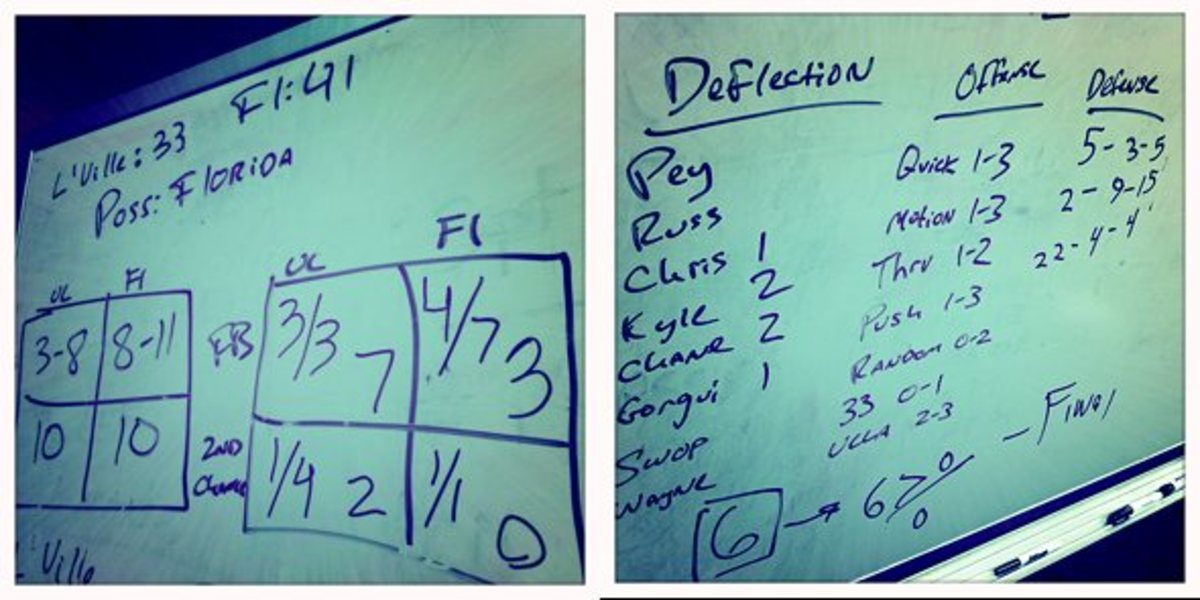 L'Ville: 33 Fl: 41
Poss: Florida
UL Fl
3-8 8-11
10 10
UL Fl
FB 3/3 7 4/7 3
2ND Chance 1/4 2 1/1 0
L'Ville
Deflection Offense Defense
Pey Quick 1-3 5-3-5
Russ Motion 1-3 2-9-15
Chris 1 Thru 1-2 22-4-4
Kyle 2 Push 1-3
Chane 2 Random 0-2
Gorgui 1 33 0-1
Swop UCLA 2-3
Wayne
6 → 67% - Final